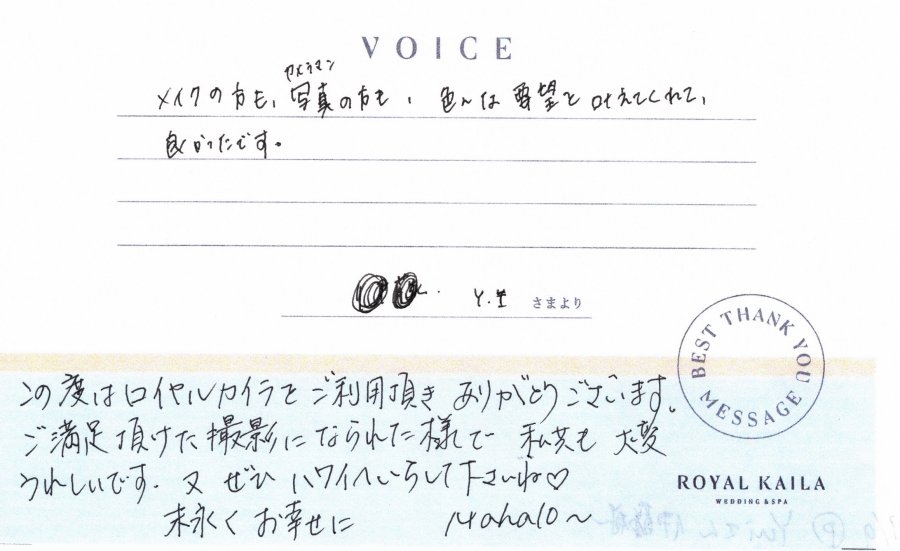 VOICE
カメラマン
メイクの方も、写真の方も、色んな要望を叶えてくれて、
良かったです。
Y.
さまより
BEST THANK YOU MESSAGE
この度はロイヤルカイラをご利用頂きありがとうございます。
ご満足頂けた撮影になられた様で 私共も 大変
うれしいです. 又 ぜひ ハワイへいらして下さいね♡
末永く お幸せに Mahalo~
ROYAL KAILA
WEDDING & SPA